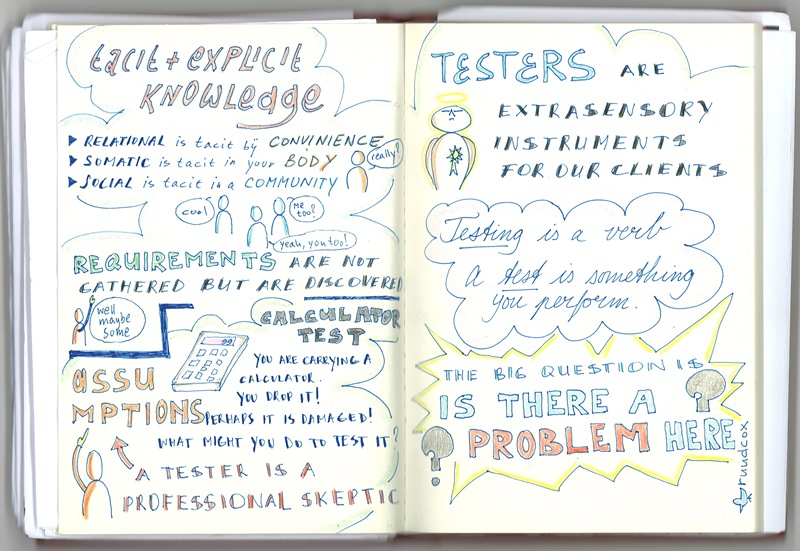 tacit + EXPLICIT
KNOWLedge
▶ RELATIONAL is tacit by CONVINIENCE
▶ SOMATIC is tacit in your BODY
really?
▶ SOCIAL is tacit in a COMMUNITY
cool
Me too?
yeah, you too!
REQUIREMENTS ARE NOT
GATHERED BUT ARE DISCOVERED
well
maybe
some
CALCULATOR
TEST
99
YOU ARE CARRYING A
CALCULATOR.
YOU DROP IT!
PERHAPS IT IS DAMAGED!
WHAT MIGHT YOU DO TO TEST IT?
assu
MPTIONS
A TESTER IS A
PROFESSIONAL SKEPTIC
TESTERS ARE
EXTRASENSORY
INSTRUMENTS
FOR OUR CLIENTS
Testing is a verb
A test is something
you perform.
THE BIG QUESTION IS
IS THERE A
PROBLEM HERE
?
?
ruudcox